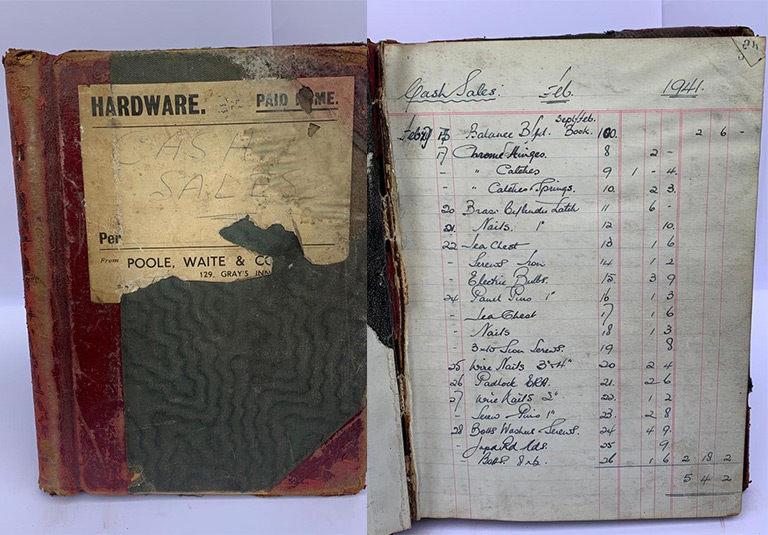 HARDWARE. PAID
CASH
SALES
Per
From POOLE, WAITE & CO
129, GRAY'S INN
Cash Sales. Feb. 1941.
Sept/Feb.
Feb 15 Balance Book. 100. 2 6 -
17 Chrome Hinges. 8 2 -
- " Catches 9 1 - 4.
- " Catches Springs. 10. 2 3.
20 Brass Cylinder Latch 11 6 -
21. Nails. 1" 12 10.
22 Tea Chest 13 1 6
- Screws Iron 14 1 2
- Electric Bulbs. 15. 3 9
24 Panel Pins 1" 16 1 3
- Tea Chest 17 1 6
- Nails 18 1 3
- Iron Screws. 19 8
25 Wire Nails 20 2 4
26 Padlock 21. 2 6
27 Wire Nails 22. 1 2
- Screw Pins 1" 23. 2 8
28 Bolts Washers Screws. 24 4 9.
- 25 9.
- Bolts. 26 1 6 2 18 2
5 4 2